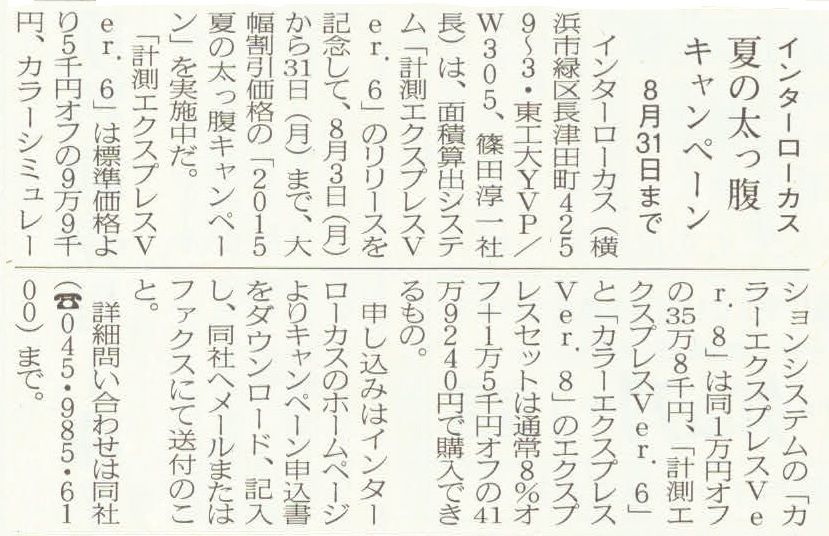 インターローカス
夏の太っ腹
キャンペーン
8月31日まで
インターローカス（横
浜市緑区長津田町425
9〜3・東工大YVP／
W305、篠田淳一社
長）は、面積算出システ
ム「計測エクスプレスV
er．6」のリリースを
記念して、8月3日（月）
から31日（月）まで、大
幅割引価格の「2015
夏の太っ腹キャンペー
ン」を実施中だ。
「計測エクスプレスV
er．6」は標準価格よ
り5千円オフの9万9千
円、カラーシミュレー
ションシステムの「カ
ラーエクスプレスVe
r．8」は同1万円オフ
の35万8千円、「計測エ
クスプレスVer．6」
と「カラーエクスプレス
Ver．8」のエクスプ
レスセットは通常8％オ
フ＋1万5千円オフの41
万9240円で購入でき
るもの。
申し込みはインター
ローカスのホームページ
よりキャンペーン申込書
をダウンロード、記入
し、同社へメールまたは
ファクスにて送付のこ
と。
詳細問い合わせは同社
（☎045・985・61
00）まで。